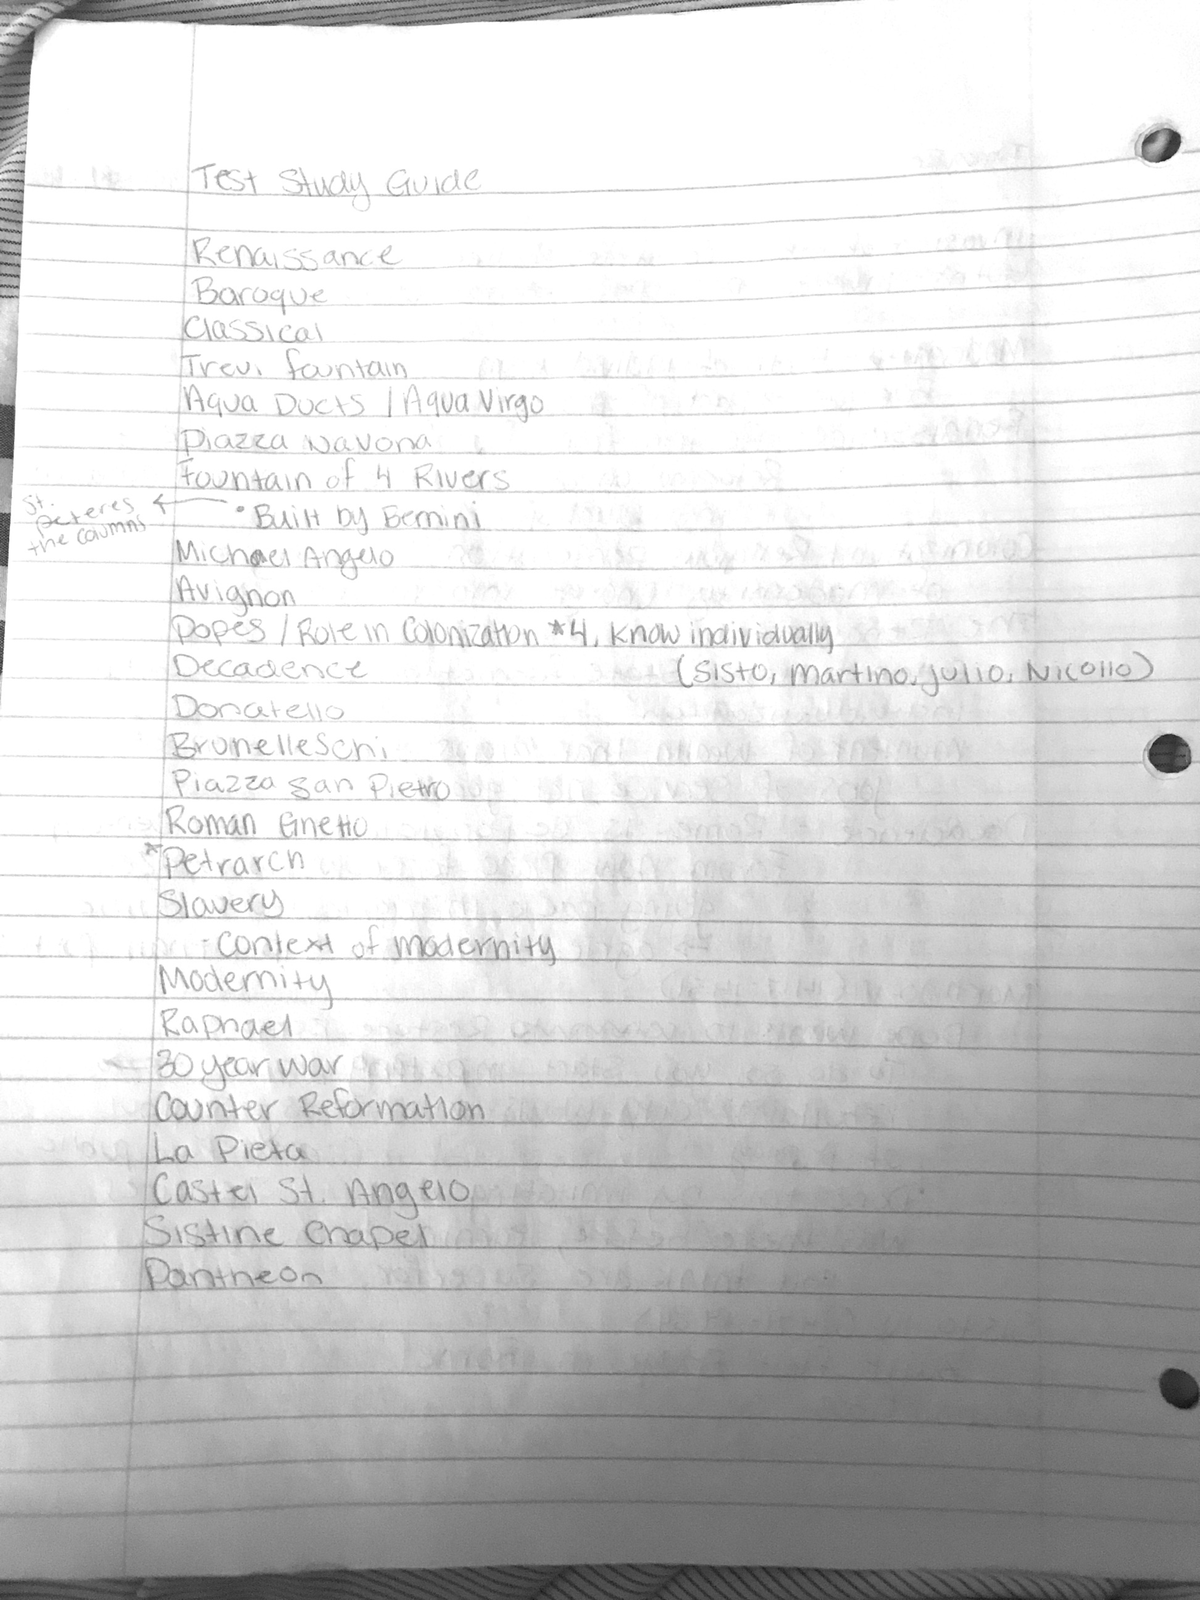 Test Study Guide
Renaissance
Baroque
Classical
Trevi fountain
Aqua Ducts / Aqua Virgo
Piazza Navona
Fountain of 4 Rivers
• Built by Bernini
St.
peteres
the columns
Michael Angelo
Avignon
Popes / Role in Colonization *4, know individually
Decadence (Sisto, Martino, Julio, Nicollo)
Donatello
Brunelleschi
Piazza San Pietro
Roman Ghetto
*Petrarch
Slavery
- Context of modernity
Modernity
Raphael
30 year war
Counter Reformation
La Pieta
Castel St. Angelo
Sistine Chapel
Pantheon